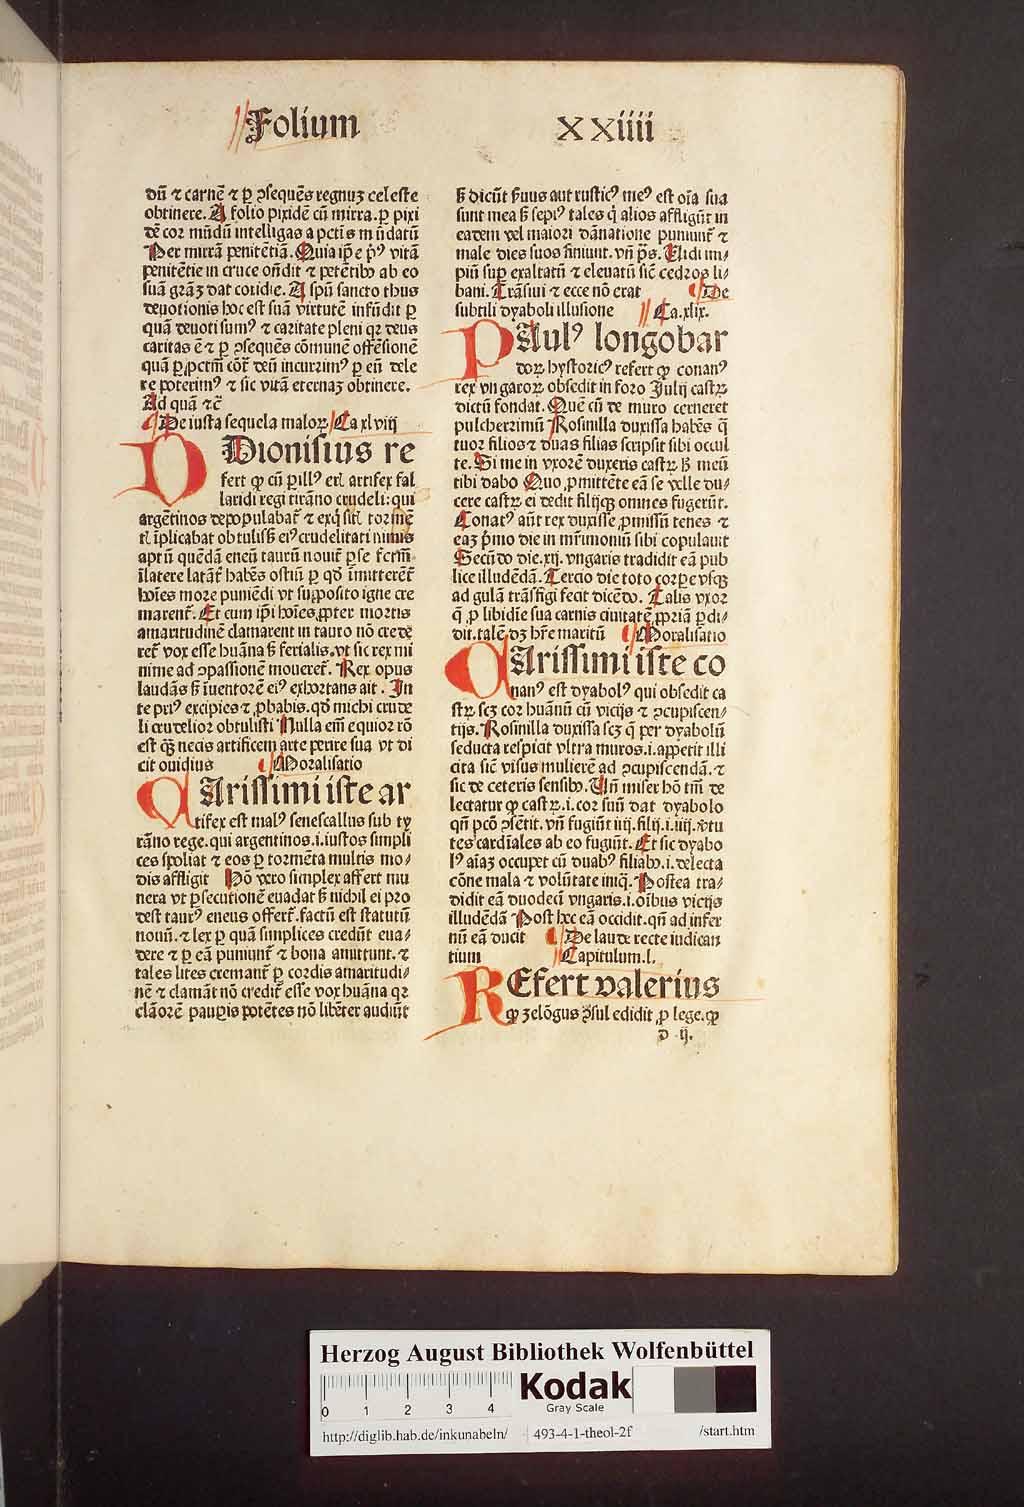 Folium XXiiii
dū ⁊ carnē ⁊ ꝑ ꝯsequēs regnuꝫ celeste
obtinere. A folio pixidē cū mirra. ꝑ pixi
dē cor mūdū intelligas a pctīs mūdatū
Per mirrā penitētiā. Quia ip̄e pͥꝰ vitā
penitētie in cruce oñdit ⁊ petētibꝰ ab eo
suā grāꝫ dat cotidie. A spū sancto thus
deuotionis hoc est suā virtutē infūdit ꝑ
quā deuoti sumꝰ ⁊ caritate pleni qꝛ deus
caritas ē ⁊ ꝑ ꝯsequēs cōmunē offēsionē
quā ꝑ pctm̄ cōt̄ deū incurrimꝰ ꝑ eū dele
re poterimꝰ ⁊ sic vitā eternaꝫ obtinere.
Ad quā ⁊c̄
De iusta sequela maloꝝ Ca xlviij
Dionisius re
fert ꝙ cū ꝑillꝰ eēt artifex fal
laridi regi tirāno crudeli: qui
argētinos depopulabat̄ ⁊ exqͥsitē tormē
tē īplicabat obtulisse eiꝰ crudelitati nimis
aptū quēdā eneū taurū nouit̄ ꝑ se
ī latere latāt̄ habēs ostiū ꝑ qd̄ īmitterēt̄
hoīes more puniēdi vt supposito igne cre
marent̄. Et cum ip̄i hoīes ꝓpter mortis
amaritudinē clamarent in tauro nō crede
ret̄ vox esse huāna s̄ ferialis. vt sic rex mi
nime ad ꝯpassionē moueret̄. Rex opus
laudās s̄ īuentorē eiꝰ exhortans ait. In
te priꝰ excipies ⁊ ꝓbabis. qd̄ michi crude
li crudelior obtulisti Nulla em̄ equior rō
est qͣꝫ necis artificem arte perire sua vt di
cit ouidius Moralisatio
CArissimi iste ar
tifex est malꝰ senescallus sub ty
rāno rege. qui argentinos .i. iustos simpli
ces spoliat ⁊ eos ꝑ tormēta multis mo/
dis affligit Hō vero simplex affert mu
nera vt ꝑsecutionē euadat s̄ nichil ei pro
dest taurꝰ eneus offert̄. factū est statutū
nouū. ⁊ lex ꝑ quā simplices credūt eua/
dere ⁊ ꝑ eā puniunt̄ ⁊ bona amittunt. ⁊
tales lites cremant̄ ꝑ cordis amaritudi/
nē ⁊ clamāt nō credit̄ esse vox huāna qꝛ
clāorē pauꝑis potētes nō libēter audiūt
s̄ dicūt ẜuus aut rusticꝰ meꝰ est oīa sua
sunt mea s̄ sepiꝰ tales qͥ alios affligūt in
eadem vel maiori dānatione puniunt̄ ⁊
male dies suos finiunt. vn̄ p̄s. Uidi im/
piū suꝑ exaltatū ⁊ eleuatū sic̄ cedros li/
bani. Trāsiui ⁊ ecce nō erat De
subtili dyaboli illusione Ca.xlix.
PAulꝰ longobar
doꝝ hystoricꝰ refert ꝙ conanꝰ
rex vngaroꝝ obsedit in foro Julij castꝝ
dictū fondat. Quē cū de muro cerneret
pulcherrimū Rosimilla duxissa habēs q̄
tuor filios ⁊ duas filias scripsit sibi occul
te. Si me in vxorē duxeris castꝝ h̄ meū
tibi dabo Quo ꝓmittēte eā se velle du/
cere castꝝ ei dedit filijqꝫ omnes fugerūt.
Conatꝰ aūt rex duxisse ꝓmissū tenes ⁊
eaꝫ pͥmo die in mr̄imoniū sibi copulauit
Secūdo die .xij. vngaris tradidit eā pub
lice illudēdā. Tercio die toto corꝑe vsqꝫ
ad gulā trāsfigi fecit dicēdo. Talis vxor
q̄ ꝓ libidīe sua carnis ciuitatē ꝓpriā ꝑdi/
dit. talē dꝫ hr̄e maritū Moralisatio
CArissimi iste co
nanꝰ est dyabolꝰ qui obsedit ca
stꝝ scꝫ cor huānū cū vicijs ⁊ ꝯcupiscen/
tijs. Rosimilla duxissa scꝫ q̄ per dyabolū
seducta respicit vltra muros .i. appetit illi
cita sic̄ visus mulierē ad ꝯcupiscendā. ⁊
sic de ceteris sensibꝰ. Un̄ miser hō tm̄ de
lectatur ꝙ castꝝ .i. cor suū dat dyabolo
qn̄ pcō ꝯsētit. vn̄ fugiūt iiij. filij .i. iiij. v̄tu
tes cardīales ab eo fugiūt. Et sic dyabo
lꝰ aīaꝫ occupet cū duabꝰ filiabꝰ .i. delecta
cōne mala ⁊ volūtate iniqͣ. Postea tra/
didit eā duodecī vngaris .i. oībus vicijs
illudēdā Post hec eā occidit. qn̄ ad infer
nū eā ducit De laude recte iudican
tium Capitulum .l.
REfert valerius
ꝙ zelōgus ꝯsul edidit ꝓ lege. ꝙ
d ij.
Herzog August Bibliothek Wolfenbüttel
0 1 2 3 4
Kodak
Gray Scale
http://diglib.hab.de/inkunabeln/ 493-4-1-theol-2f /start.htm